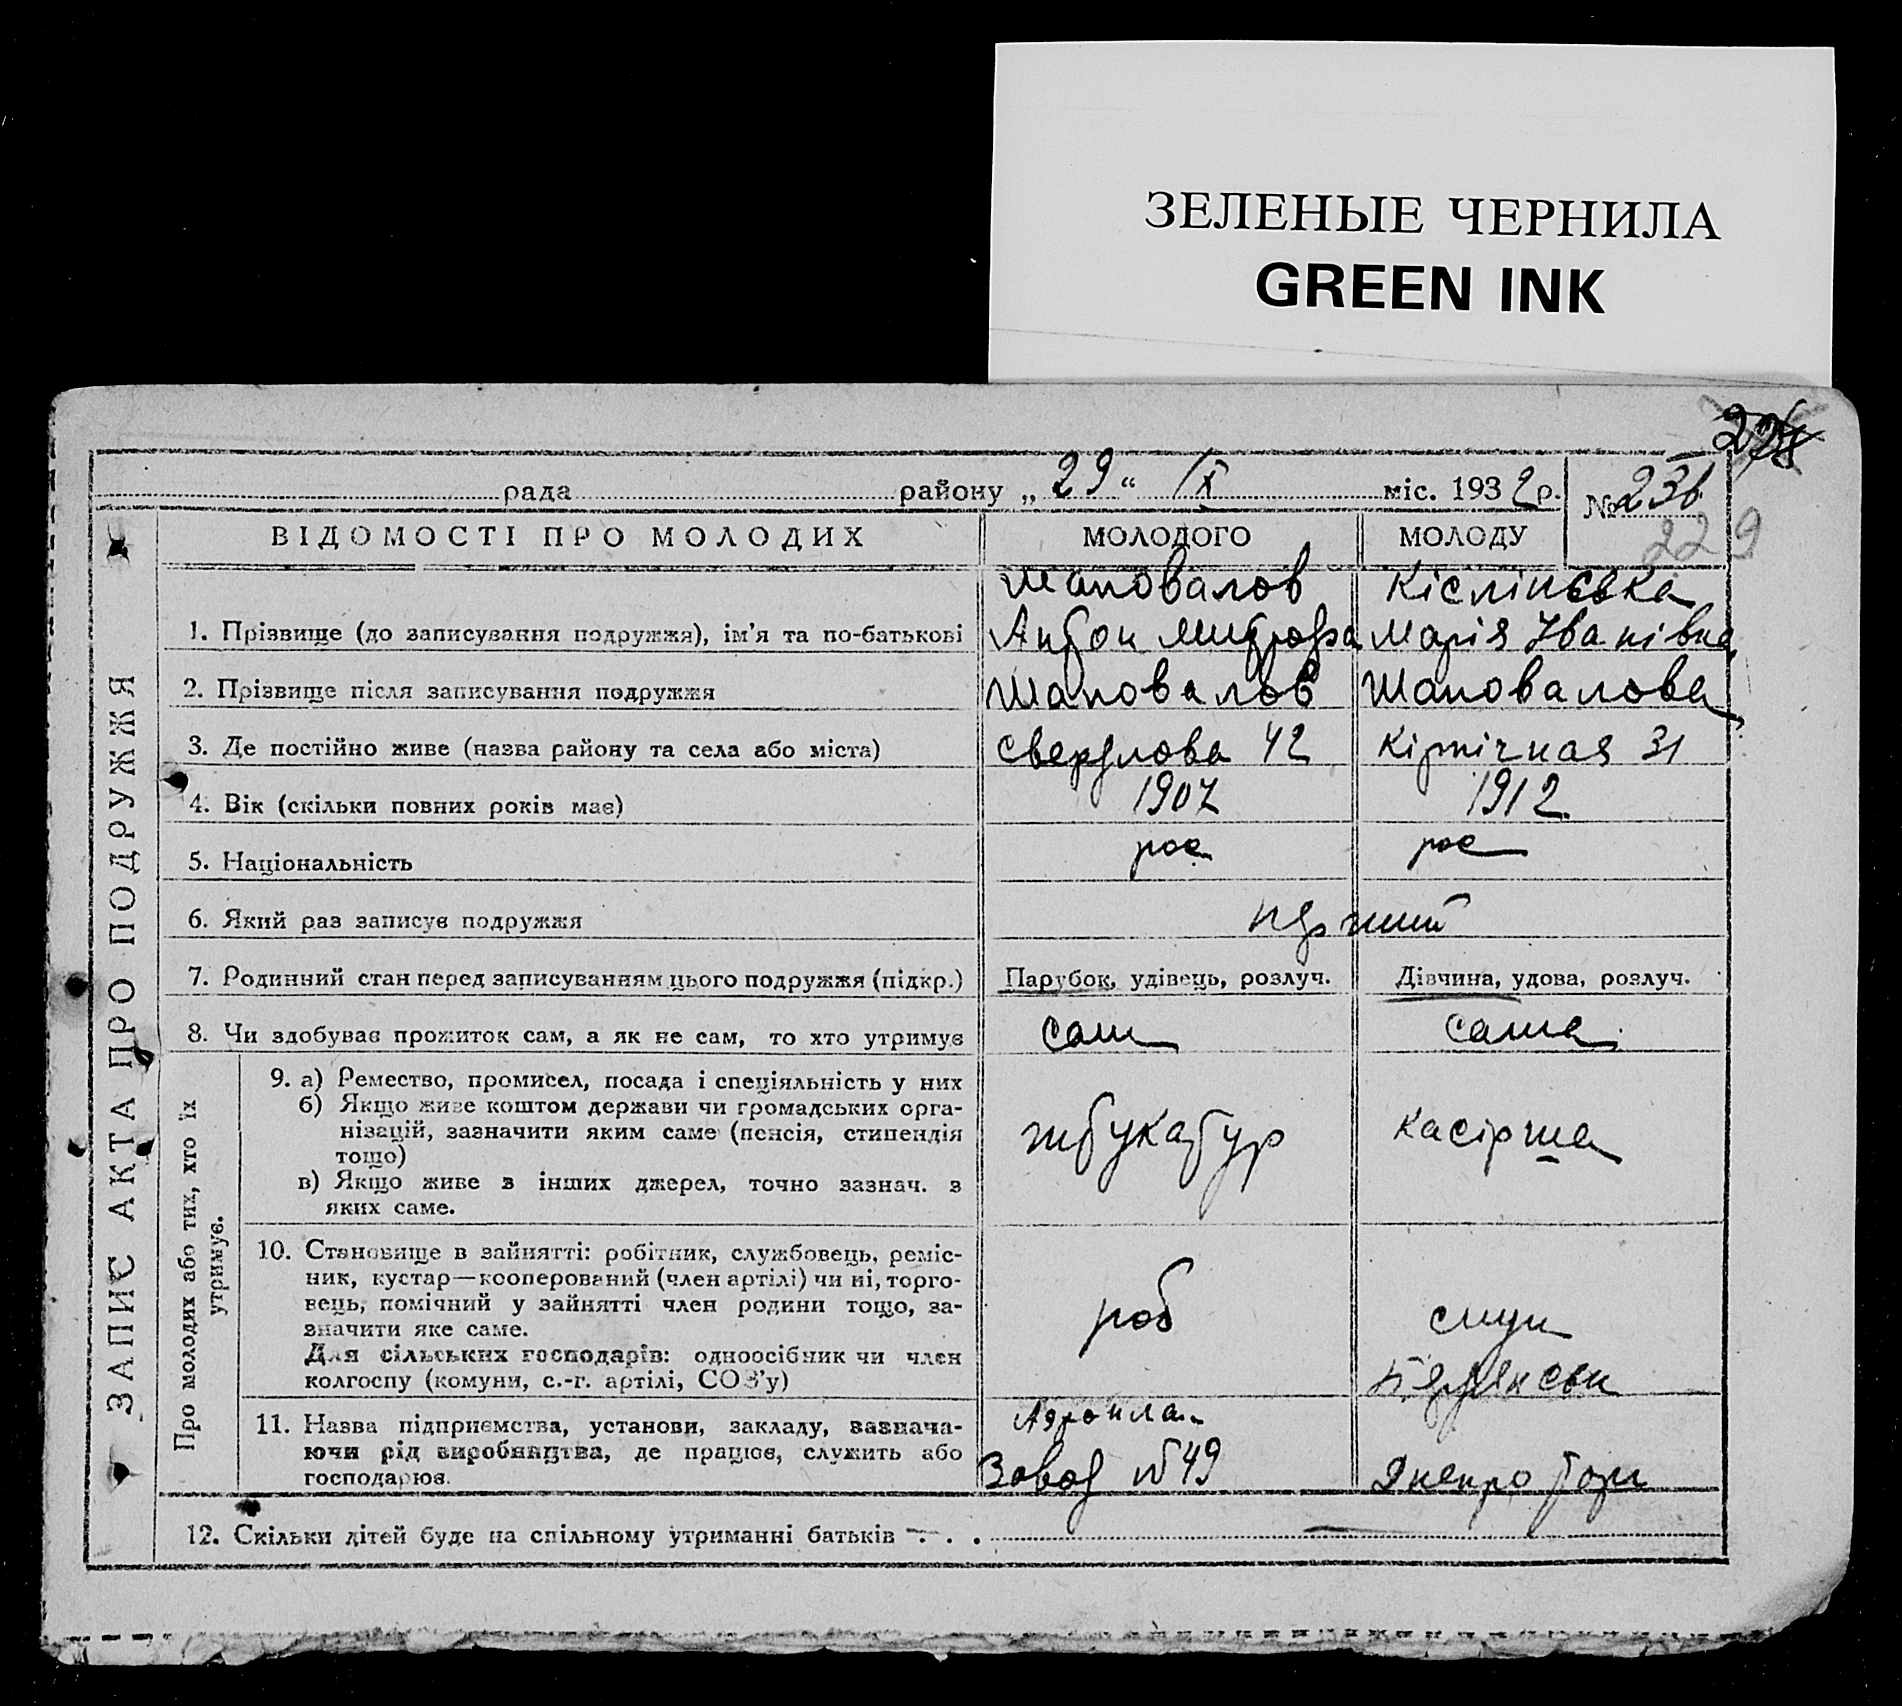 ЗЕЛЕНЫЕ ЧЕРНИЛА
GREEN INK
рада району „ 29 “ IX міс. 1932 р. №
229
ЗАПИС АКТА ПРО ПОДРУЖЖЯ
ВІДОМОСТІ ПРО МОЛОДИХ МОЛОДОГО МОЛОДУ
Шаповалов Кіслінська
1. Прізвище (до записування подружжя), ім'я та по-батькові Антон Митрофа Марія Іванівна
2. Прізвище після записування подружжя Шаповалов Шаповалова
3. Де постійно живе (назва району та села або міста) Свердлова 42 Кірпічная 31
4. Вік (скільки повних років має) 1907 1912
5. Національність рос рос
6. Який раз записує подружжя
7. Родинний стан перед записуванням цього подружжя (підкр.) Парубок, удівець, розлуч. Дівчина, удова, розлуч.
8. Чи здобуває прожиток сам, а як не сам, то хто утримує сам сама
Про молодих або тих, хто їх
утримує.
9. а) Ремество, промисел, посада і спеціяльність у них
б) Якщо живе коштом держави чи громадських орга-
нізацій, зазначити яким саме (пенсія, стипендія
тощо)
штукатур касірша
в) Якщо живе з інших джерел, точно зазнач. з
яких саме.
10. Становище в зайнятті: робітник, службовець, реміс-
ник, кустар—кооперований (член артілі) чи ні, торго-
вець, помічний у зайнятті член родини тощо, за-
значити яке саме.
роб служ
Для сільських господарів: одноосібник чи член
колгоспу (комуни, с.-г. артілі, СОЗ'у)
11. Назва підприємства, установи, закладу, зазнача-
ючи рід виробництва, де працює, служить або
господарює.
Завод №49 Днепроторг
12. Скільки дітей буде на спільному утриманні батьків — . . .